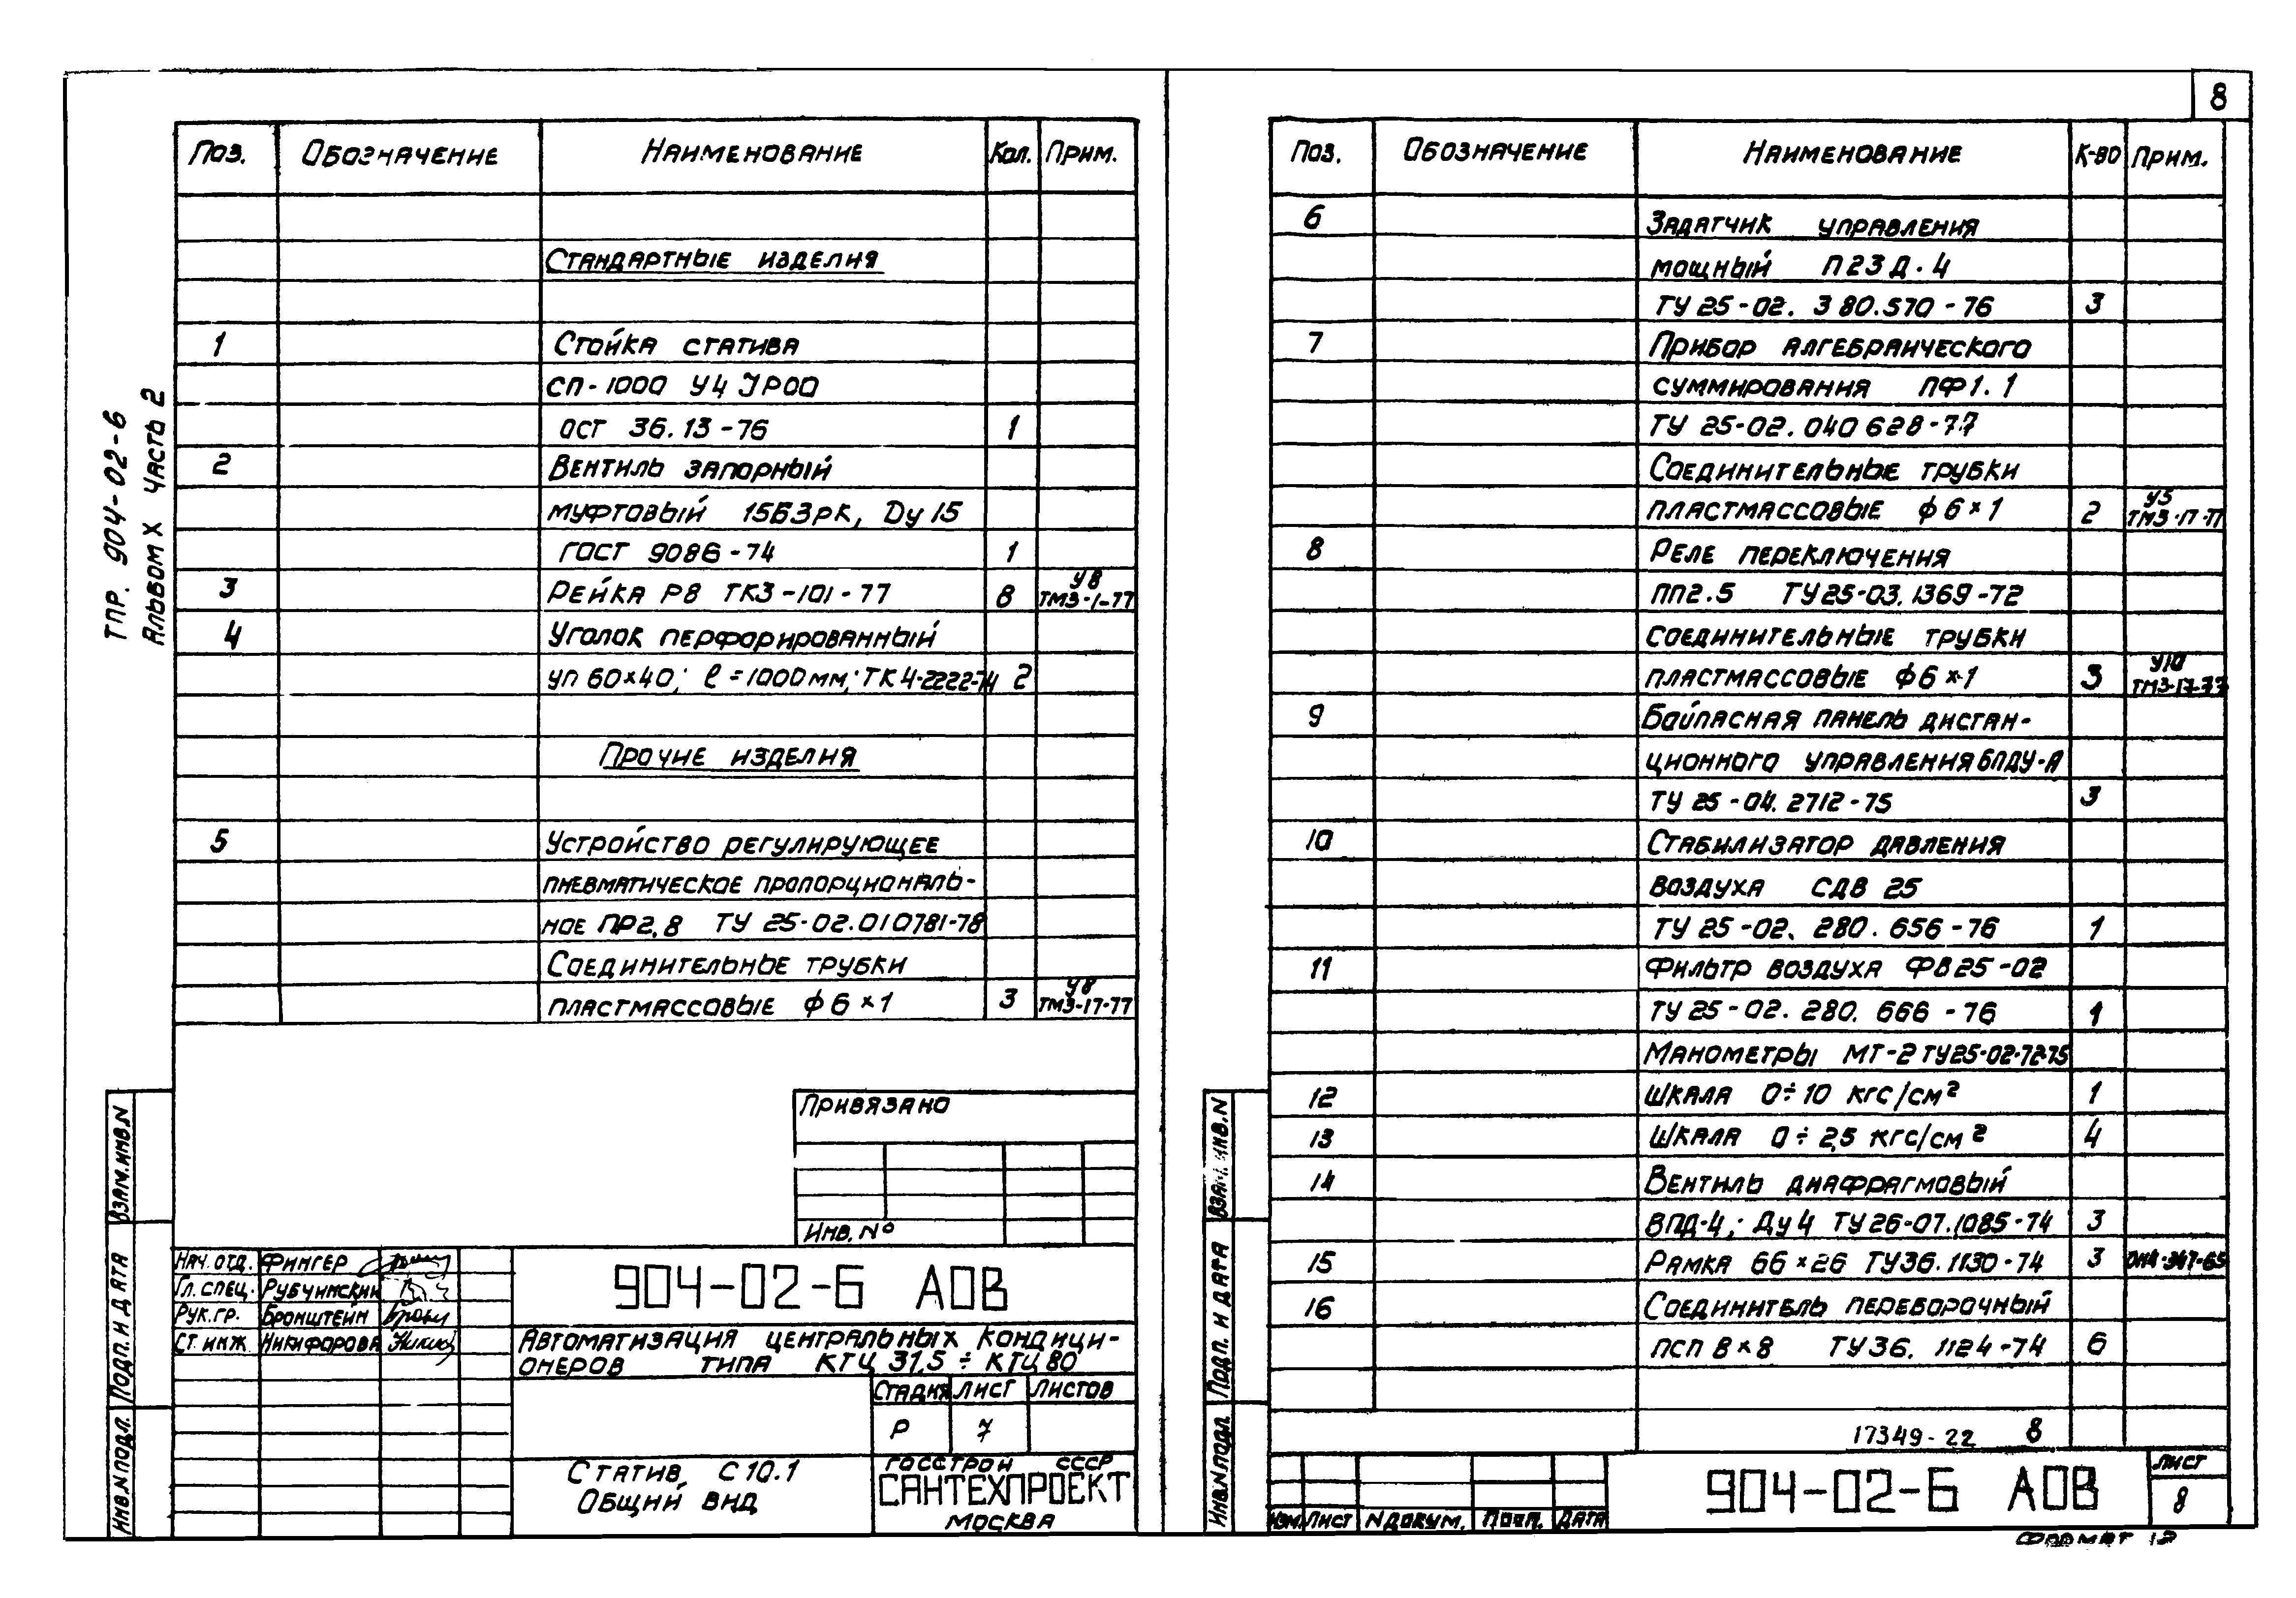 8
ТПР. 904-02-6
Альбом X Часть 2
Поз. Обозначение Наименование Кол. Прим.
Стандартные изделия
1 Стойка статива
СП-1000 У4 IP00
ОСТ 36.13-76 1
2 Вентиль запорный
муфтовый 15Б3рк, Dу 15
ГОСТ 9086-74 1
3 Рейка Р8 ТК3-101-77 8 У8 ТМ3-1-77
4 Уголок перфорированный
УП 60×40; ℓ=1000мм; ТК4-2222-74 2
Прочие изделия
5 Устройство регулирующее
пневматическое пропорциональ-
ное ПР2.8 ТУ 25-02.010781-78
Соединительные трубки
пластмассовые ф 6×1 3 У8 ТМ3-17-77
Привязано
Инв. №
Взам. инв. N
Подп. и дата
Инв. N подл.
Нач. отд. Фингер
Гл. спец. Рубчинский
Рук. гр. Бронштейн
Ст. инж. Никифорова
904-02-6 АОВ
Автоматизация центральных кондици-
онеров типа КТЦ 31,5 ÷ КТЦ 80
Стадия Лист Листов
Р 7
Статив С10.1
Общий вид
Госстрой СССР
САНТЕХПРОЕКТ
Москва
Поз. Обозначение Наименование К-во Прим.
6 Задатчик управления
мощный П23Д.4
ТУ 25-02. 380.570-76 3
7 Прибор алгебраического
суммирования ПФ1.1
ТУ 25-02.040628-77
Соединительные трубки
пластмассовые ф 6×1 2 У5 ТМ3-17-77
8 Реле переключения
ПП2.5 ТУ25-03.1369-72
Соединительные трубки
пластмассовые ф 6×1 3 У10 ТМ3-17-77
9 Байпасная панель дистан-
ционного управления БПДУ-А
ТУ 25-04.2712-75 3
10 Стабилизатор давления
воздуха СДВ 25
ТУ 25-02. 280. 656-76 1
11 Фильтр воздуха ФВ25-02
ТУ 25-02. 280. 666-76 1
Манометры МТ-2 ТУ25-02-72-75
12 Шкала 0÷10 кгс/см² 1
13 Шкала 0÷2,5 кгс/см² 4
14 Вентиль диафрагмовый
ВПД-4; Ду 4 ТУ26-07.1085-74 3
15 Рамка 66×26 ТУ36.1130-74 3
16 Соединитель переборочный
ПСП 8×8 ТУ36. 1124-74 6
17349-22 8
Взам. инв. N
Подп. и дата
Инв. N подл.
Изм. Лист N докум. Подп. Дата
904-02-6 АОВ
Лист
8
Формат 12